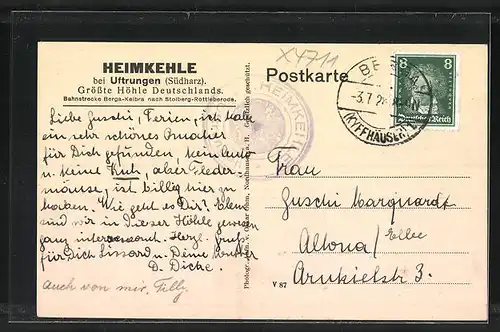 X4711
HEIMKEHLE
bei Uftrungen (Südharz).
Größte Höhle Deutschlands.
Bahnstrecke Berga-Kelbra nach Stolberg-Rottleberode.
Postkarte
8 8
Deutsches Reich
-3.7.2
(KYFFHÄUSER)
HEIMKEHLE
Liebe Guschi, Ferien, ich habe
ein sehr schönes
für Dich gefunden, kein Auto
u. keine Kuh, aber Fleder-
mäuse, ist billig hier zu
haben. Wie geht es Dir? Eben
sind wir in dieser Höhle gewesen
ganz interessant. Herzl. Gruß
für Dich u. Deine
D. Dicke.
auch von mir. Tilly.
Photogr. u. Verlag Nordhausen a. H. Gesetzlich geschützt.
Frau
Guschi Marquardt
Altona/Elbe
Arnkielstr. 3.
V 87